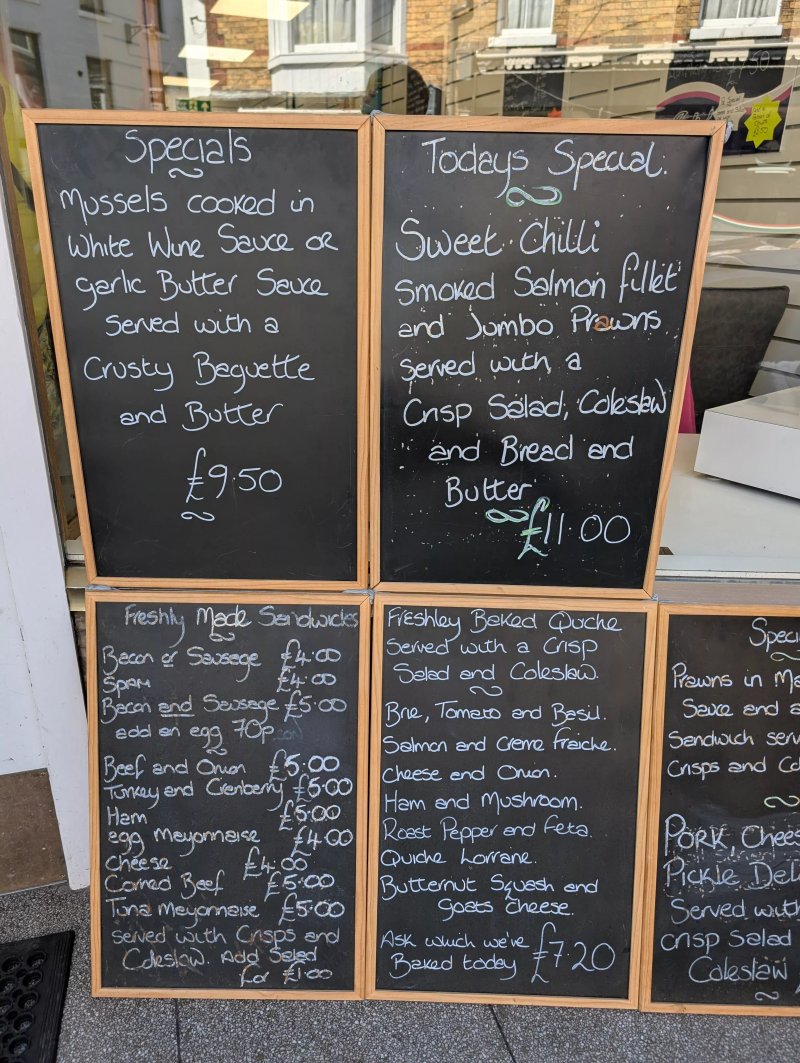 Specials
Mussels cooked in
White Wine Sauce or
garlic Butter Sauce
served with a
Crusty Baguette
and Butter
£9.50
Todays Special.
Sweet Chilli
smoked Salmon fillet
and Jumbo Prawns
served with a
Crisp Salad, Coleslaw
and Bread and
Butter
£11.00
Freshly Made Sandwiches
Bacon or Sausage £4.00
Spam £4.00
Bacon and Sausage £5.00
add an egg 70p
Beef and Onion £5.00
Turkey and Cranberry £5.00
Ham £5.00
egg Mayonnaise £4.00
Cheese £4.00
Corned Beef £5.00
Tuna Mayonnaise £5.00
served with Crisps and
Coleslaw. Add Salad
for £1.00
Freshley Baked Quiche
served with a Crisp
Salad and Coleslaw.
Brie, Tomato and Basil.
Salmon and Creme Fraiche.
Cheese and Onion.
Ham and Mushroom.
Roast Pepper and Feta.
Quiche Lorrane.
Butternut Squash and
goats cheese.
Ask which we've
Baked today £7.20
Prawns in
Sauce and
Sandwich
Crisps and
Pork,
Pickle
Served
Crisp Salad
Coleslaw